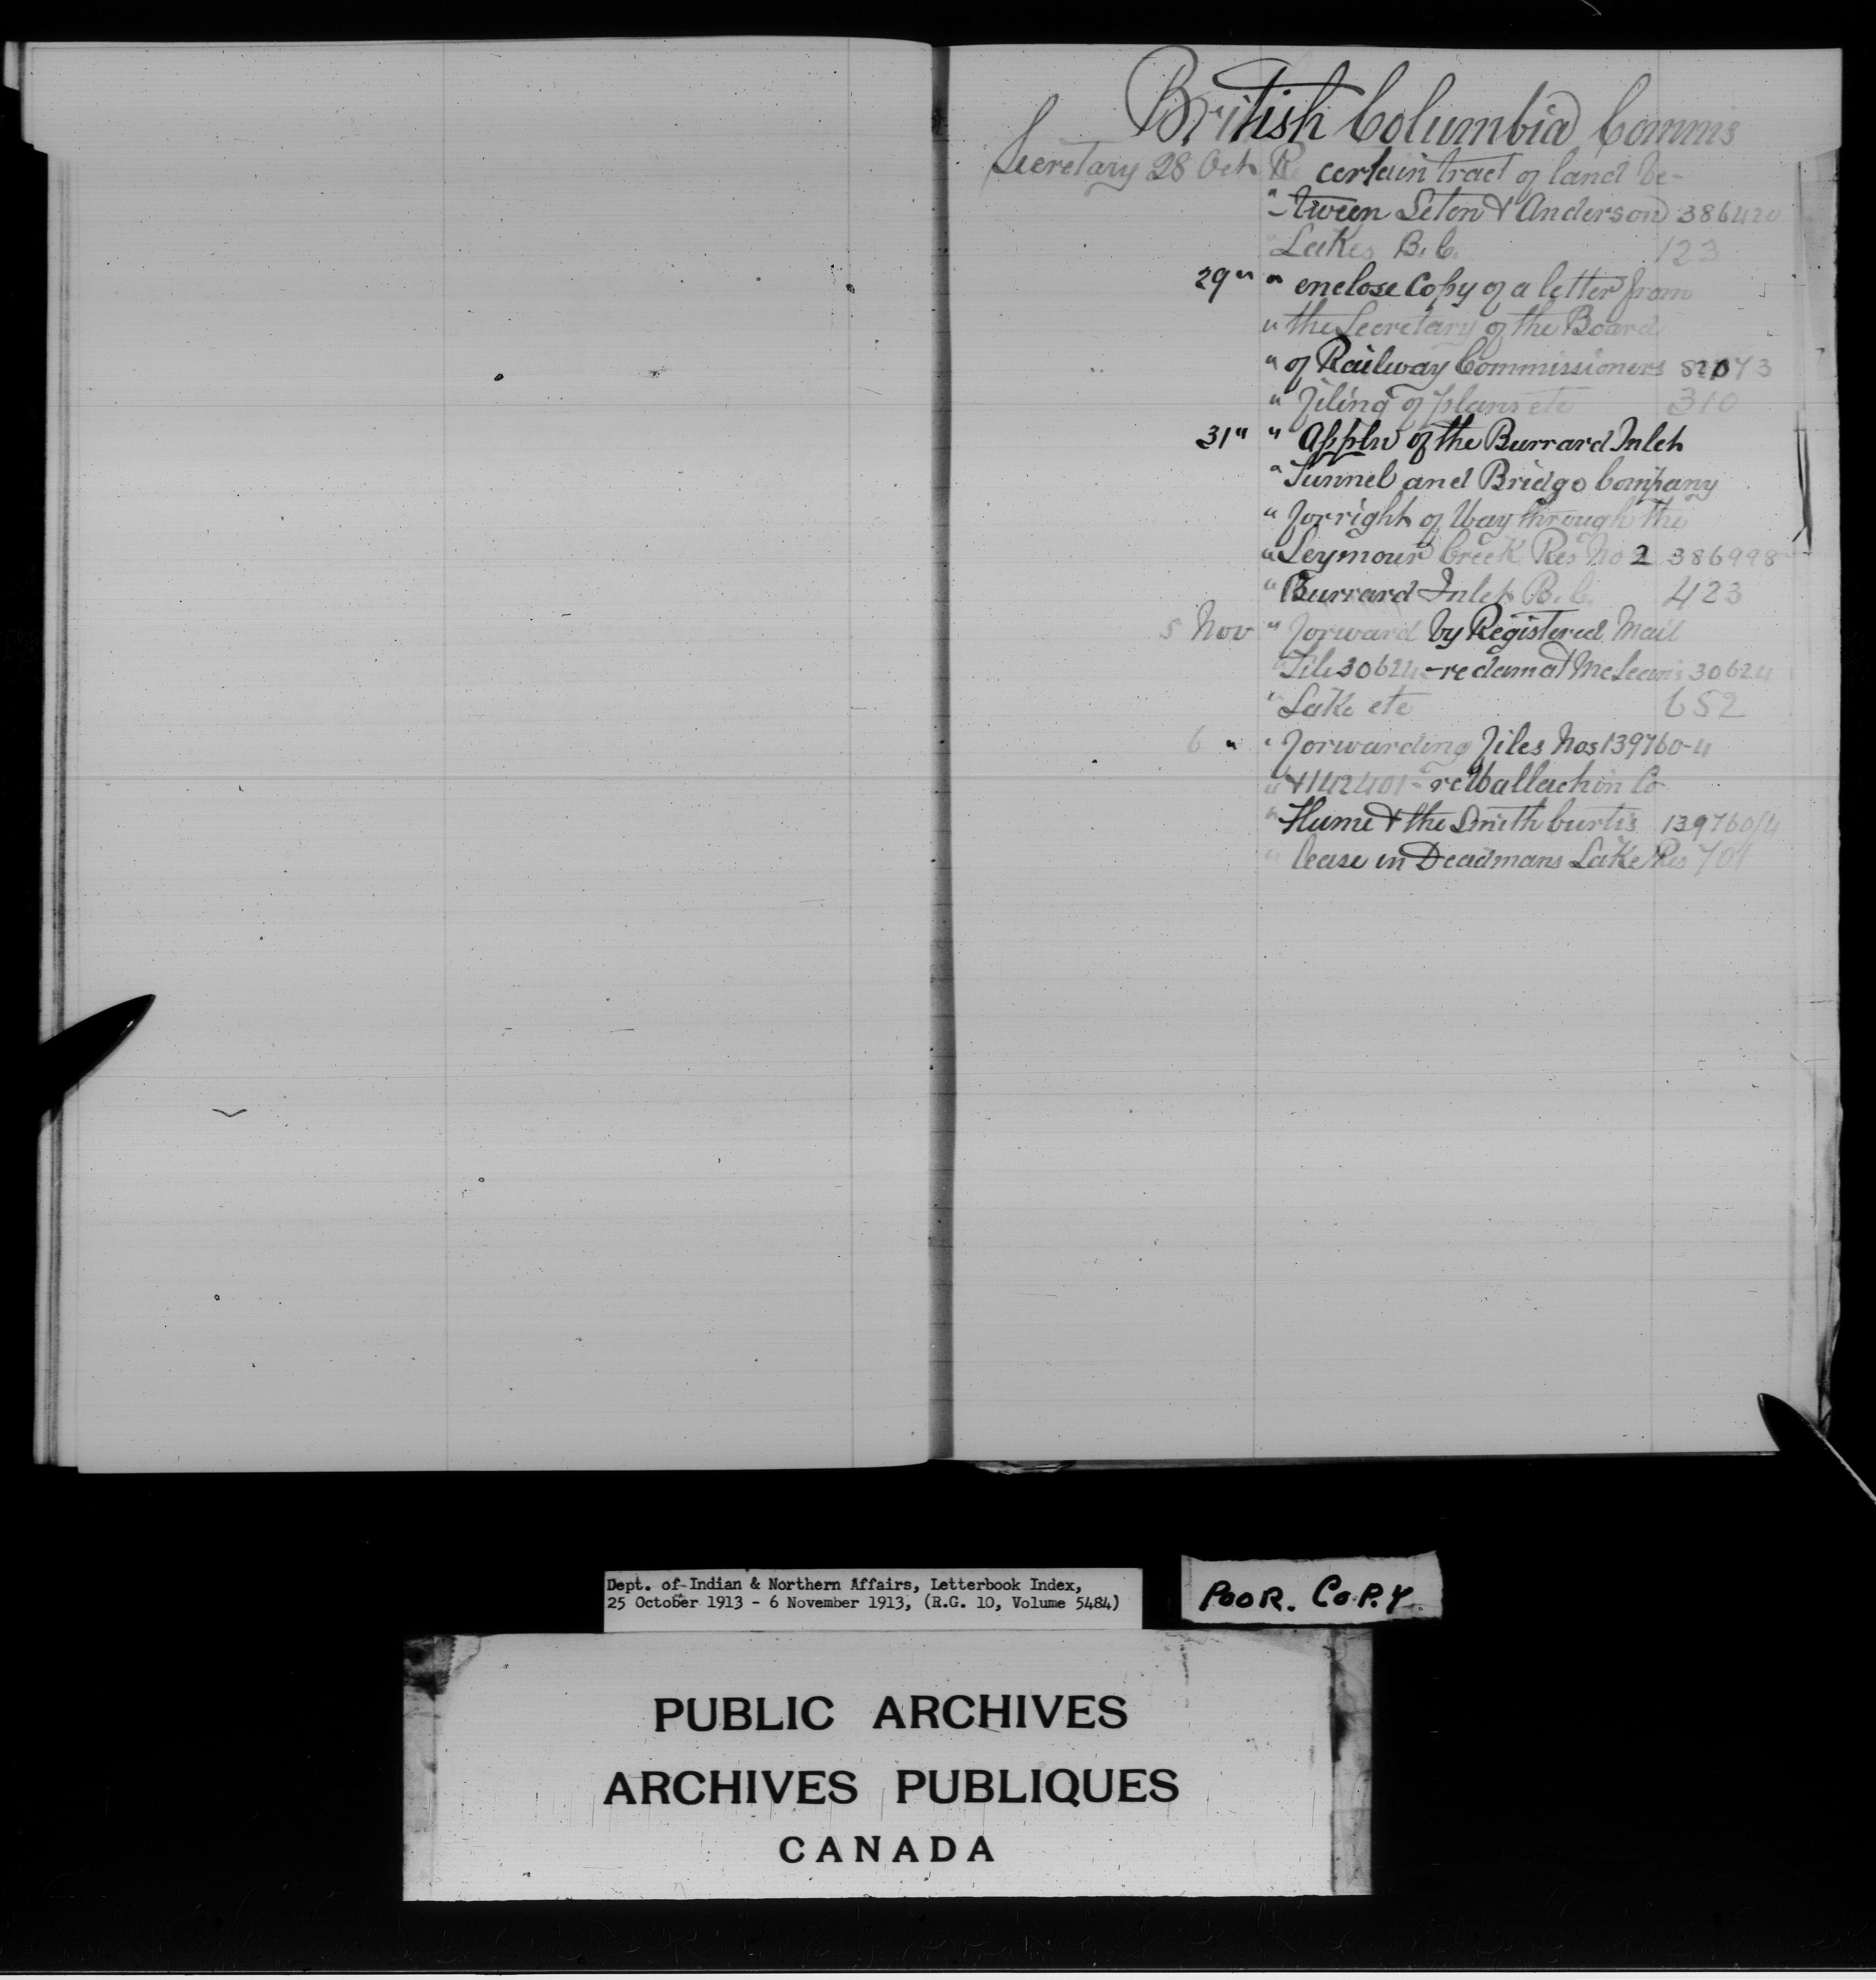 British Columbia Comms
Secretary 28 Oct Re certain tract of land be-
" -tween Seton & Anderson 386420
" Lakes B.C. 123
29 " " enclose Copy of a letter from
" the Secretary of the Board
" of Railway Commissioners
" filing of plans etc 310
31 " " Appln of the Burrard Inlet
" Tunnel and Bridge Company
" for right of Way through the
" Seymour Creek Res No 2 386998
" Burrard Inlet B.C. 423
5 Nov " forward by Registered Mail
" File 30624 - re dam at McLeans 30624
" Lake etc 652
6 " " forwarding files Nos 139760-4
" & 142401 - re Wallachin Co
" Hume & the Smith Curtis 139760/4
" lease in Deadmans Lake Res 701
Dept. of Indian & Northern Affairs, Letterbook Index,
25 October 1913 - 6 November 1913, (R.G. 10, Volume 5484)
POOR. COPY.
PUBLIC ARCHIVES
ARCHIVES PUBLIQUES
CANADA